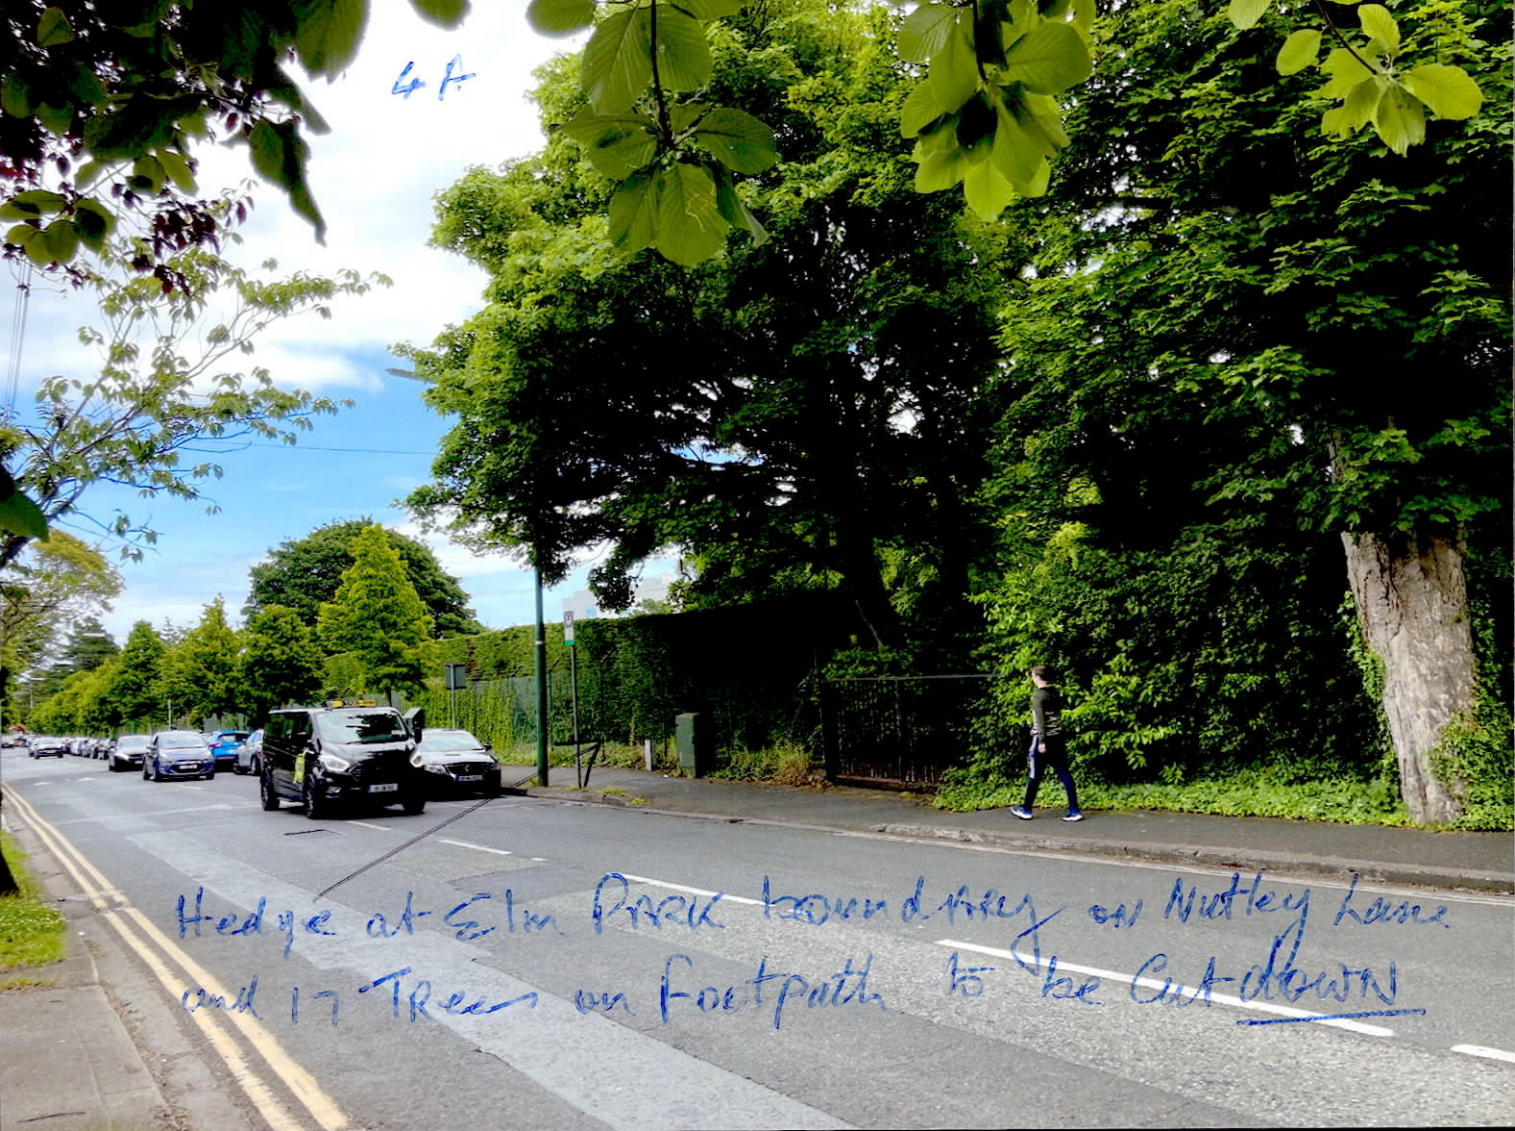 4A
Hedge at Elm Park boundary on Nutley Lane
and 17 Trees on Footpath to be Cut down